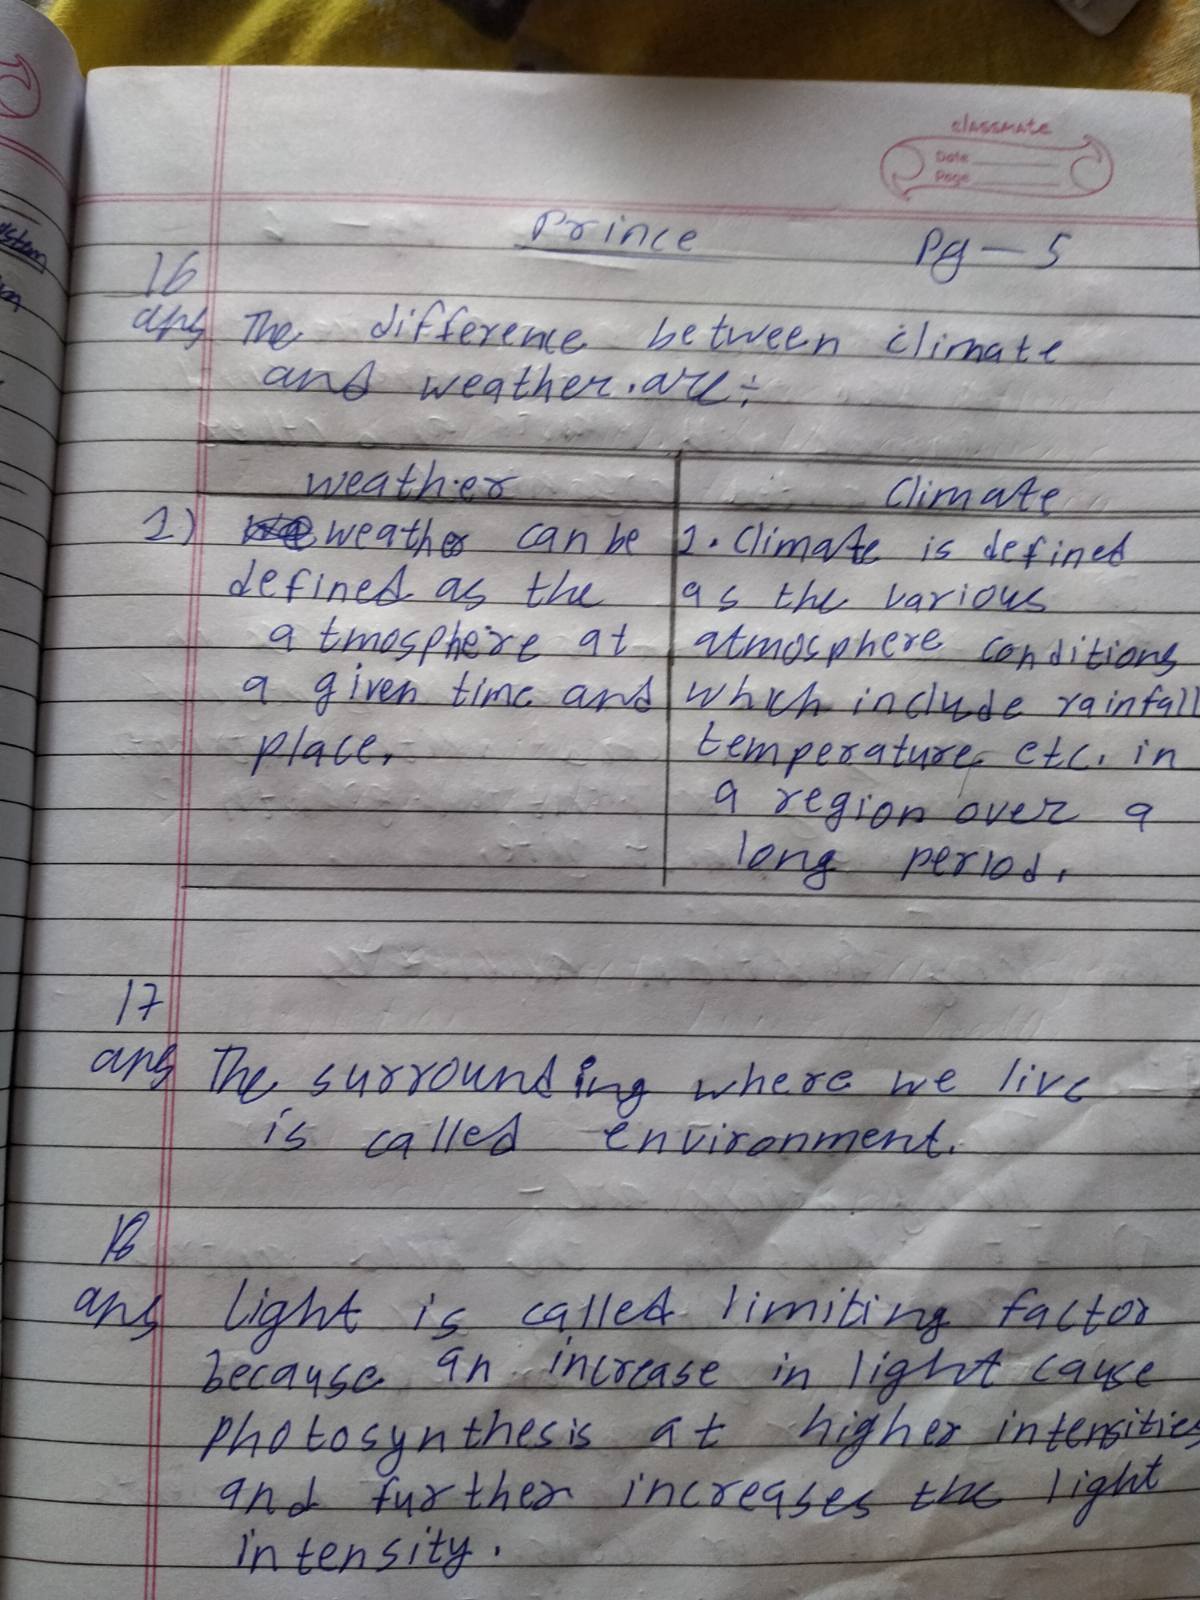 classmate
Date
Page
Prince
Pg - 5
16
ans The difference between climate
and weather.are ÷
weather
Climate
1) weather can be
defined as the
atmosphere at
a given time and
place.
1. Climate is defined
as the various
atmosphere conditions
which include rainfall
temperature etc. in
a region over a
long period.
17
ans The surrounding where we live
is called environment.
18
ans Light is called limiting factor
because an increase in light cause
photosynthesis at higher intensities
and further increases the light
intensity.